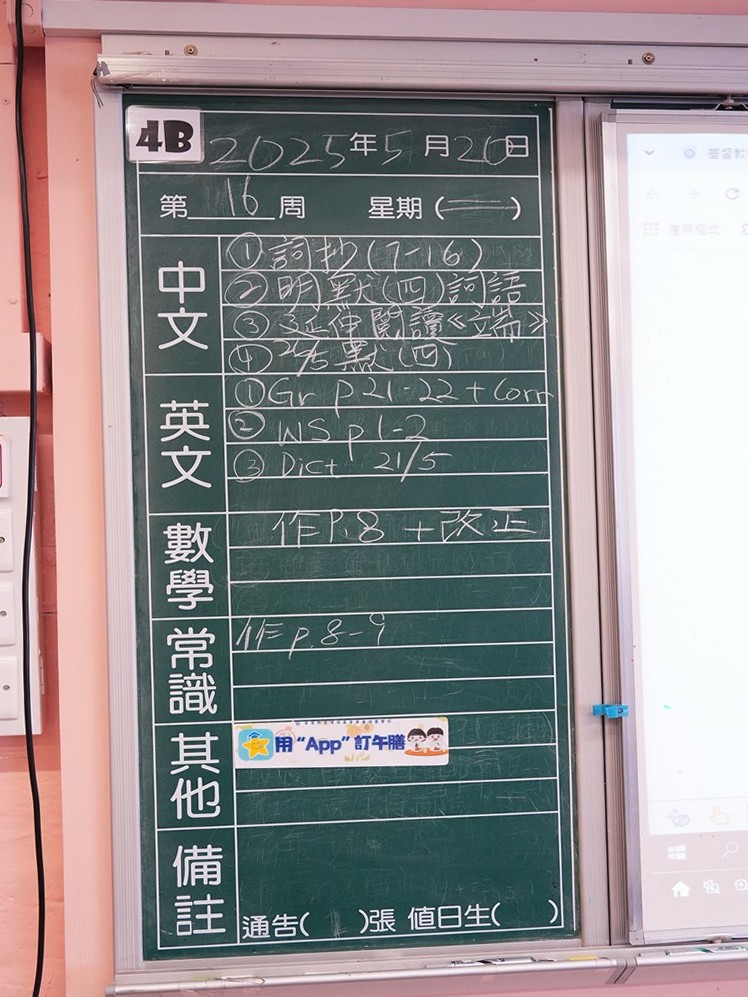 4B 2025年5月20日
第16周 星期(二)
中文
①詞抄(7-16)
②明默(四)詞語
③延伸閱讀《端》
④20/5默(四)
英文
①Gr p 21-22 + Corr
②WS p 1-2
③Dict 21/5
數學
作P.8 + 改正
常識
作p.8-9
其他
用“App”訂午膳
備註
通告( )張 值日生( )
應用程式